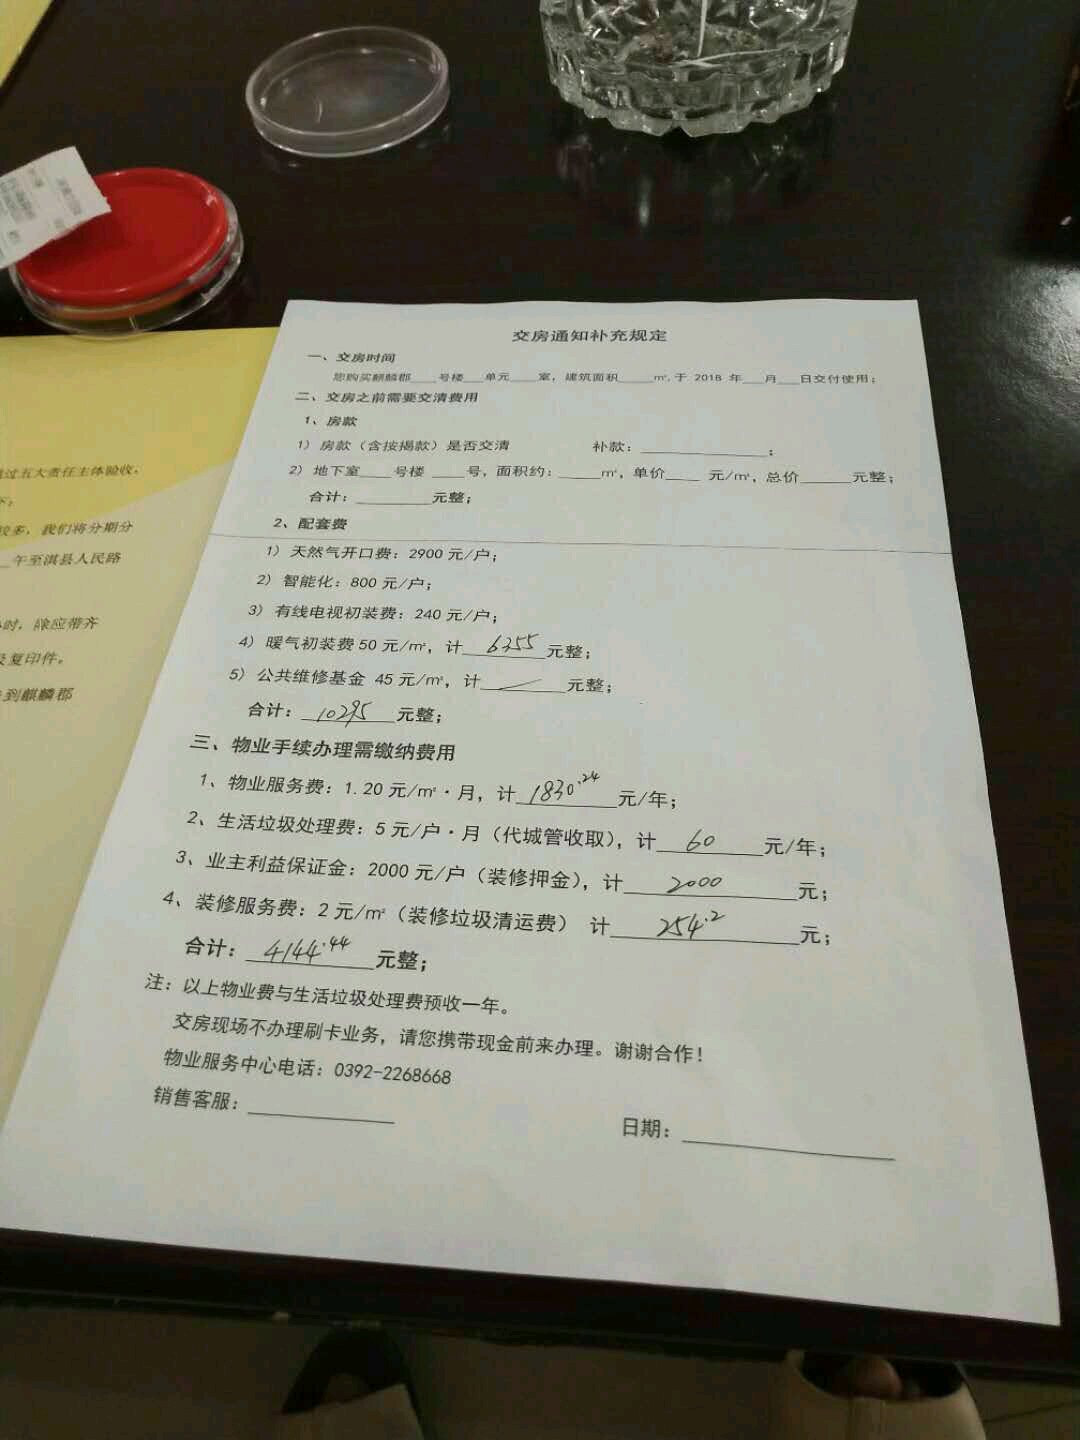 交房通知补充规定
一、交房时间
您购买麒麟郡____号楼___单元____室，建筑面积_____㎡,于 2018 年___月___日交付使用；
二、交房之前需要交清费用
1、房款
1）房款（含按揭款）是否交清 补款：______________；
2）地下室____号楼 ____号，面积约：_____㎡，单价____ 元/㎡，总价______元整；
合计：________元整；
2、配套费
1）天然气开口费：2900 元/户；
2）智能化：800 元/户；
3）有线电视初装费：240 元/户；
4）暖气初装费 50 元/㎡，计 6355 元整；
5）公共维修基金 45 元/㎡，计 ／ 元整；
合计：10295 元整；
三、物业手续办理需缴纳费用
1、物业服务费：1.20 元/㎡·月，计 1830.24 元/年；
2、生活垃圾处理费：5 元/户·月（代城管收取），计 60 元/年；
3、业主利益保证金：2000 元/户（装修押金），计 2000 元；
4、装修服务费：2 元/㎡（装修垃圾清运费） 计 254.2 元；
合计：4144.44 元整；
注：以上物业费与生活垃圾处理费预收一年。
交房现场不办理刷卡业务，请您携带现金前来办理。谢谢合作！
物业服务中心电话：0392-2268668
销售客服：____________
日期：________________
过五大责任主体验收，
较多，我们将分期分
午至淇县人民路
时，除应带齐
及复印件。
到麒麟郡